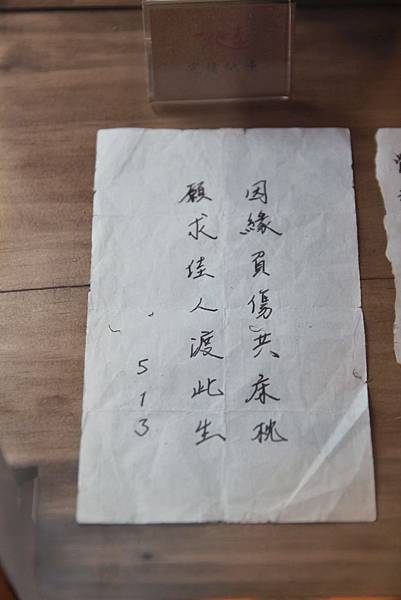 因緣負傷共床桃
願求佳人渡此生
513